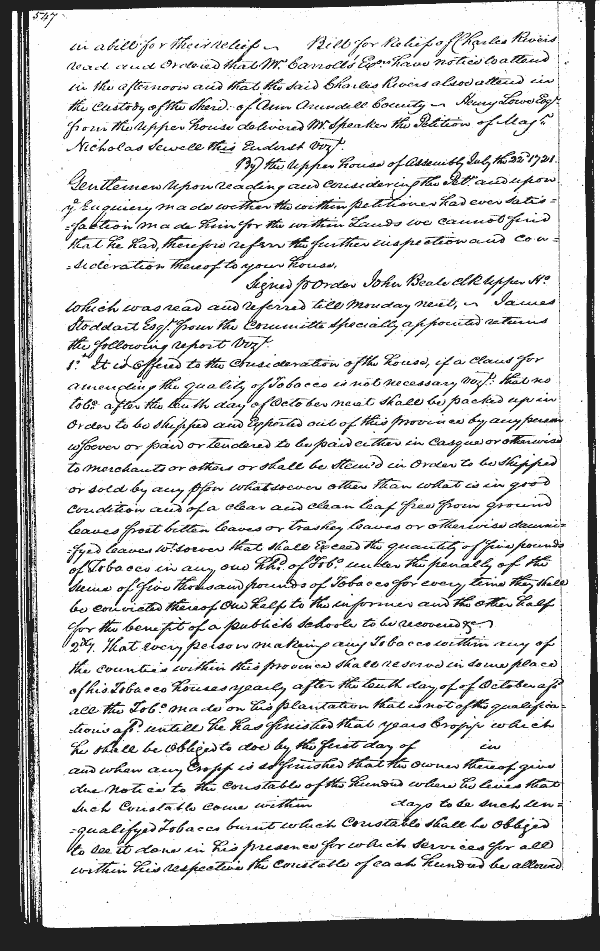 547
in a bill for their relief ~ Bill for Relief of Charles Rivers
read and Ordered that Mr. Carroll & Esqrs. have notice to attend
in the afternoon and that the said Charles Rivers also attend in
the Custody of the Sherr. of Ann Arundell County ~ Henry Lowe Esqr.
from the Upper house delivered Mr. Speaker the Petition of Majr.
Nicholas Sewell thus Endorst vizt.
By the Upper house of Assembly July the 22d. 1721.
Gentlemen Upon reading and considering the Pet. and upon
ye. Enquiery made wether the within petitioner had ever satis=
=faction made him for the within Lands we cannot find
that he had, therefore referr the further inspection and con=
=sideration thereof to your house.
Signed p Order John Beale Clk Upper Ho.
Which was read and referred till Monday next, ~ James
Stoddart Esqr. from the Committe specially appointed returns
the following report vizt.
1o. It is offered to the consideration of the house, if a claus for
amending the quality of Tobacco is not necessary vizt. that no
tobo. after the tenth day of October next shall be packed up in
Order to be shipped and Exported out of this province by any person
wsoever or paid or tendered to be paid either in casque or otherwise
to merchants or others or shall be Stem'd in Order to be shipped
or sold by any pson whatsoever other than what is in good
condition and of a clear and clean leaf free from ground
leaves frost bitten leaves or trashey leaves or otherwise damni=
=fyed leaves wt.soever that shall Exceed the quantity of five pounds
of Tobacco in any one hhd. of Tobo. under the penalty of the
sume of five thousand pounds of Tobacco for every time they shall
be convicted thereof One half to the informer and the other half
for the benefit of a publick schoole to be recovered &c.
2dly. That every person making any Tobacco within any of
the counties within this province shall reserve in some place
of his Tobacco houses yearly after the tenth day of of October afsd.
all the Tobo. made on his plantation that is not of the qualifica=
=tions afsd. untill he has finished that years Cropp which
he shall be Obliged to doe by the first day of in
and when any Cropp is so finished that the owner thereof give
due notice to the Constable of the hundred where he lives that
such Constable come within days to se such un=
=qualifyed Tobacco burnt which Constable shall be Obliged
to see it done in his presence for which services for all
within his respective the constable of each hundred be allowed